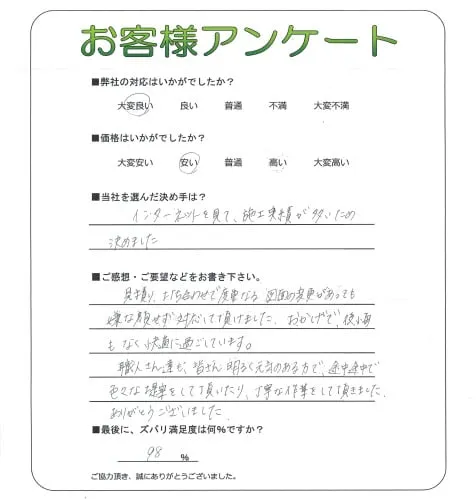 お客様アンケート
■弊社の対応はいかがでしたか？
大変良い 良い 普通 不満 大変不満
■価格はいかがでしたか？
大変安い 安い 普通 高い 大変高い
■当社を選んだ決め手は？
インターネットを見て、施工実績が多いため
決めました
■ご感想・ご要望などをお書き下さい。
見積り、打ち合わせで度重なる 図面の変更があっても
嫌な顔せず対応して頂けました。おかげで、後悔
もなく快適に過ごしています。
職人さん達も、皆さん明るく元気のある方で、途中途中で
色々な提案をして頂いたり、丁寧な作業をして頂きました。
ありがとうございました。
■最後に、ズバリ満足度は何％ですか？
98 ％
ご協力頂き、誠にありがとうございました。